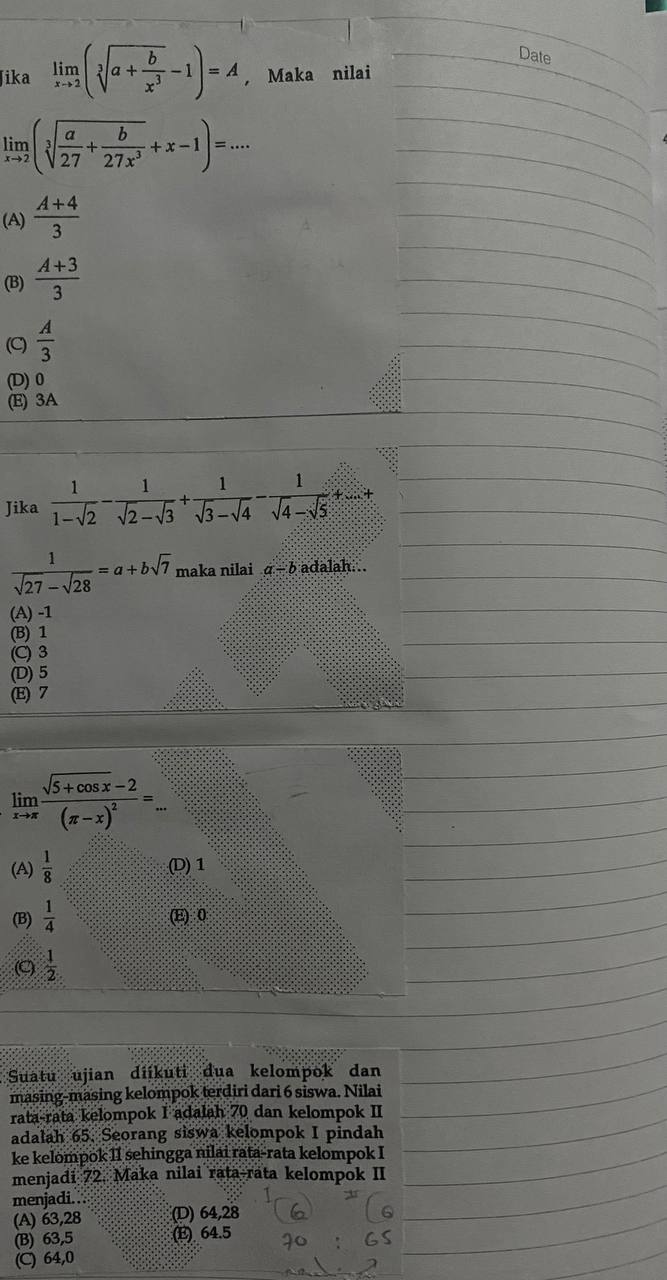 Date
Jika lim x→2 (∛(a + b/x³) − 1) = A, Maka nilai
lim x→2 (∛(a/27 + b/(27x³)) + x − 1) = ....
(A) (A+4)/3
(B) (A+3)/3
(C) A/3
(D) 0
(E) 3A
Jika 1/(1−√2) − 1/(√2−√3) + 1/(√3−√4) − 1/(√4−√5) + .... +
1/(√27−√28) = a + b√7 maka nilai a − b adalah...
(A) -1
(B) 1
(C) 3
(D) 5
(E) 7
lim x→π (√(5 + cos x) − 2)/(π − x)² = ...
(A) 1/8 (D) 1
(B) 1/4 (E) 0
(C) 1/2
Suatu ujian diikuti dua kelompok dan
masing-masing kelompok terdiri dari 6 siswa. Nilai
rata-rata kelompok I adalah 70 dan kelompok II
adalah 65. Seorang siswa kelompok I pindah
ke kelompok II sehingga nilai rata-rata kelompok I
menjadi 72. Maka nilai rata-rata kelompok II
menjadi...
(A) 63,28 (D) 64,28
(B) 63,5 (E) 64.5
(C) 64,0
I (6 II (6
70 : 65